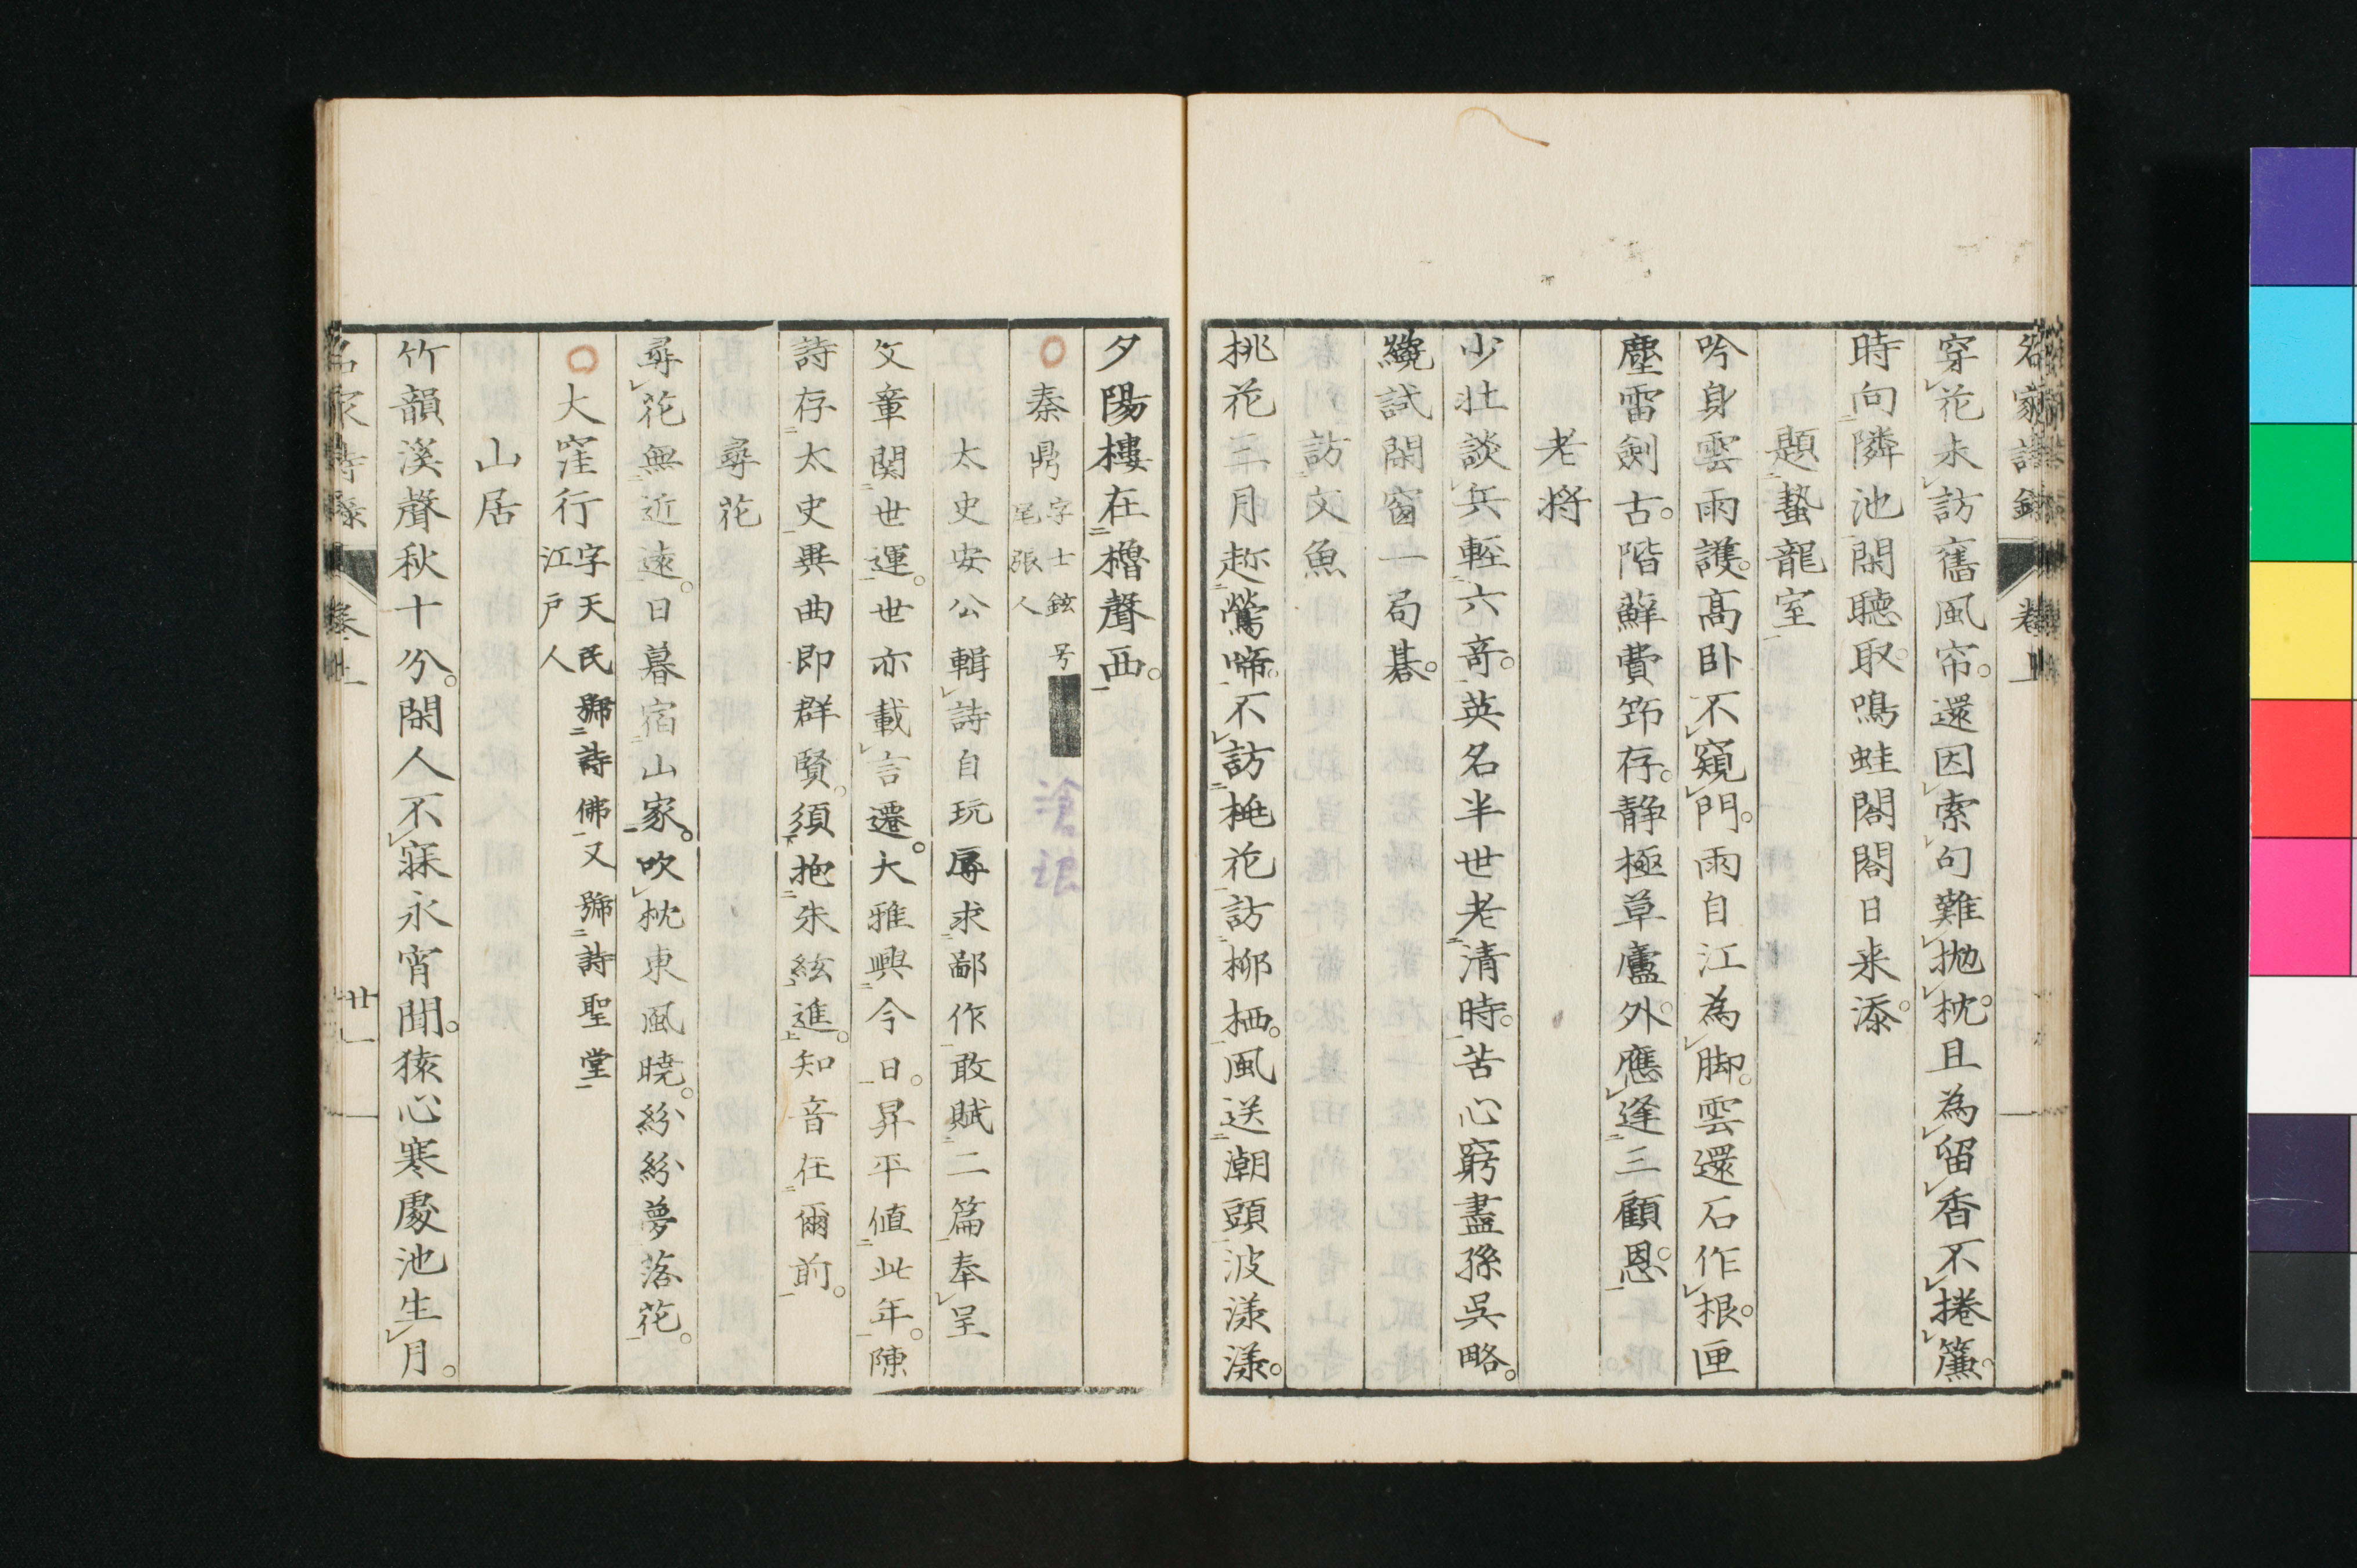 穿花未訪舊風帘。還因索句難抛枕。且為留香不捲簾。
時向隣池閑聽取。鳴蛙閣閣日来添。
題蟄龍室
吟身雲雨護。高臥不窺門。雨自江為脚。雲還石作根。匣
塵雷劍古。階蘚費筇存。静極草廬外。應逢三顧恩。
老将
少壮談兵輕六奇。英名半世老清時。苦心窮盡孫呉略。
纔試閑窗一局碁。
訪文魚
桃花三月趂鶯啼。不訪桃花訪柳栖。風送潮頭波漾漾。
夕陽樓在櫓聲西。
秦鼎 字士鉉 号 滄浪 尾張人
太史安公輯詩自玩辱求鄙作敢賦二篇奉呈
文章関世運。世亦載言遷。大雅興今日。昇平値此年。陳
詩存太史。異曲即群賢。須抱朱絃進。知音在爾前。
尋花
尋花無近遠。日暮宿山家。吹枕東風曉。紛紛夢落花。
大窪行 字天民號詩佛又號詩聖堂 江戸人
山居
竹韻溪聲秋十分。閑人不寐永宵聞。猿心寒處池生月。
名家詩録 卷上 廿一